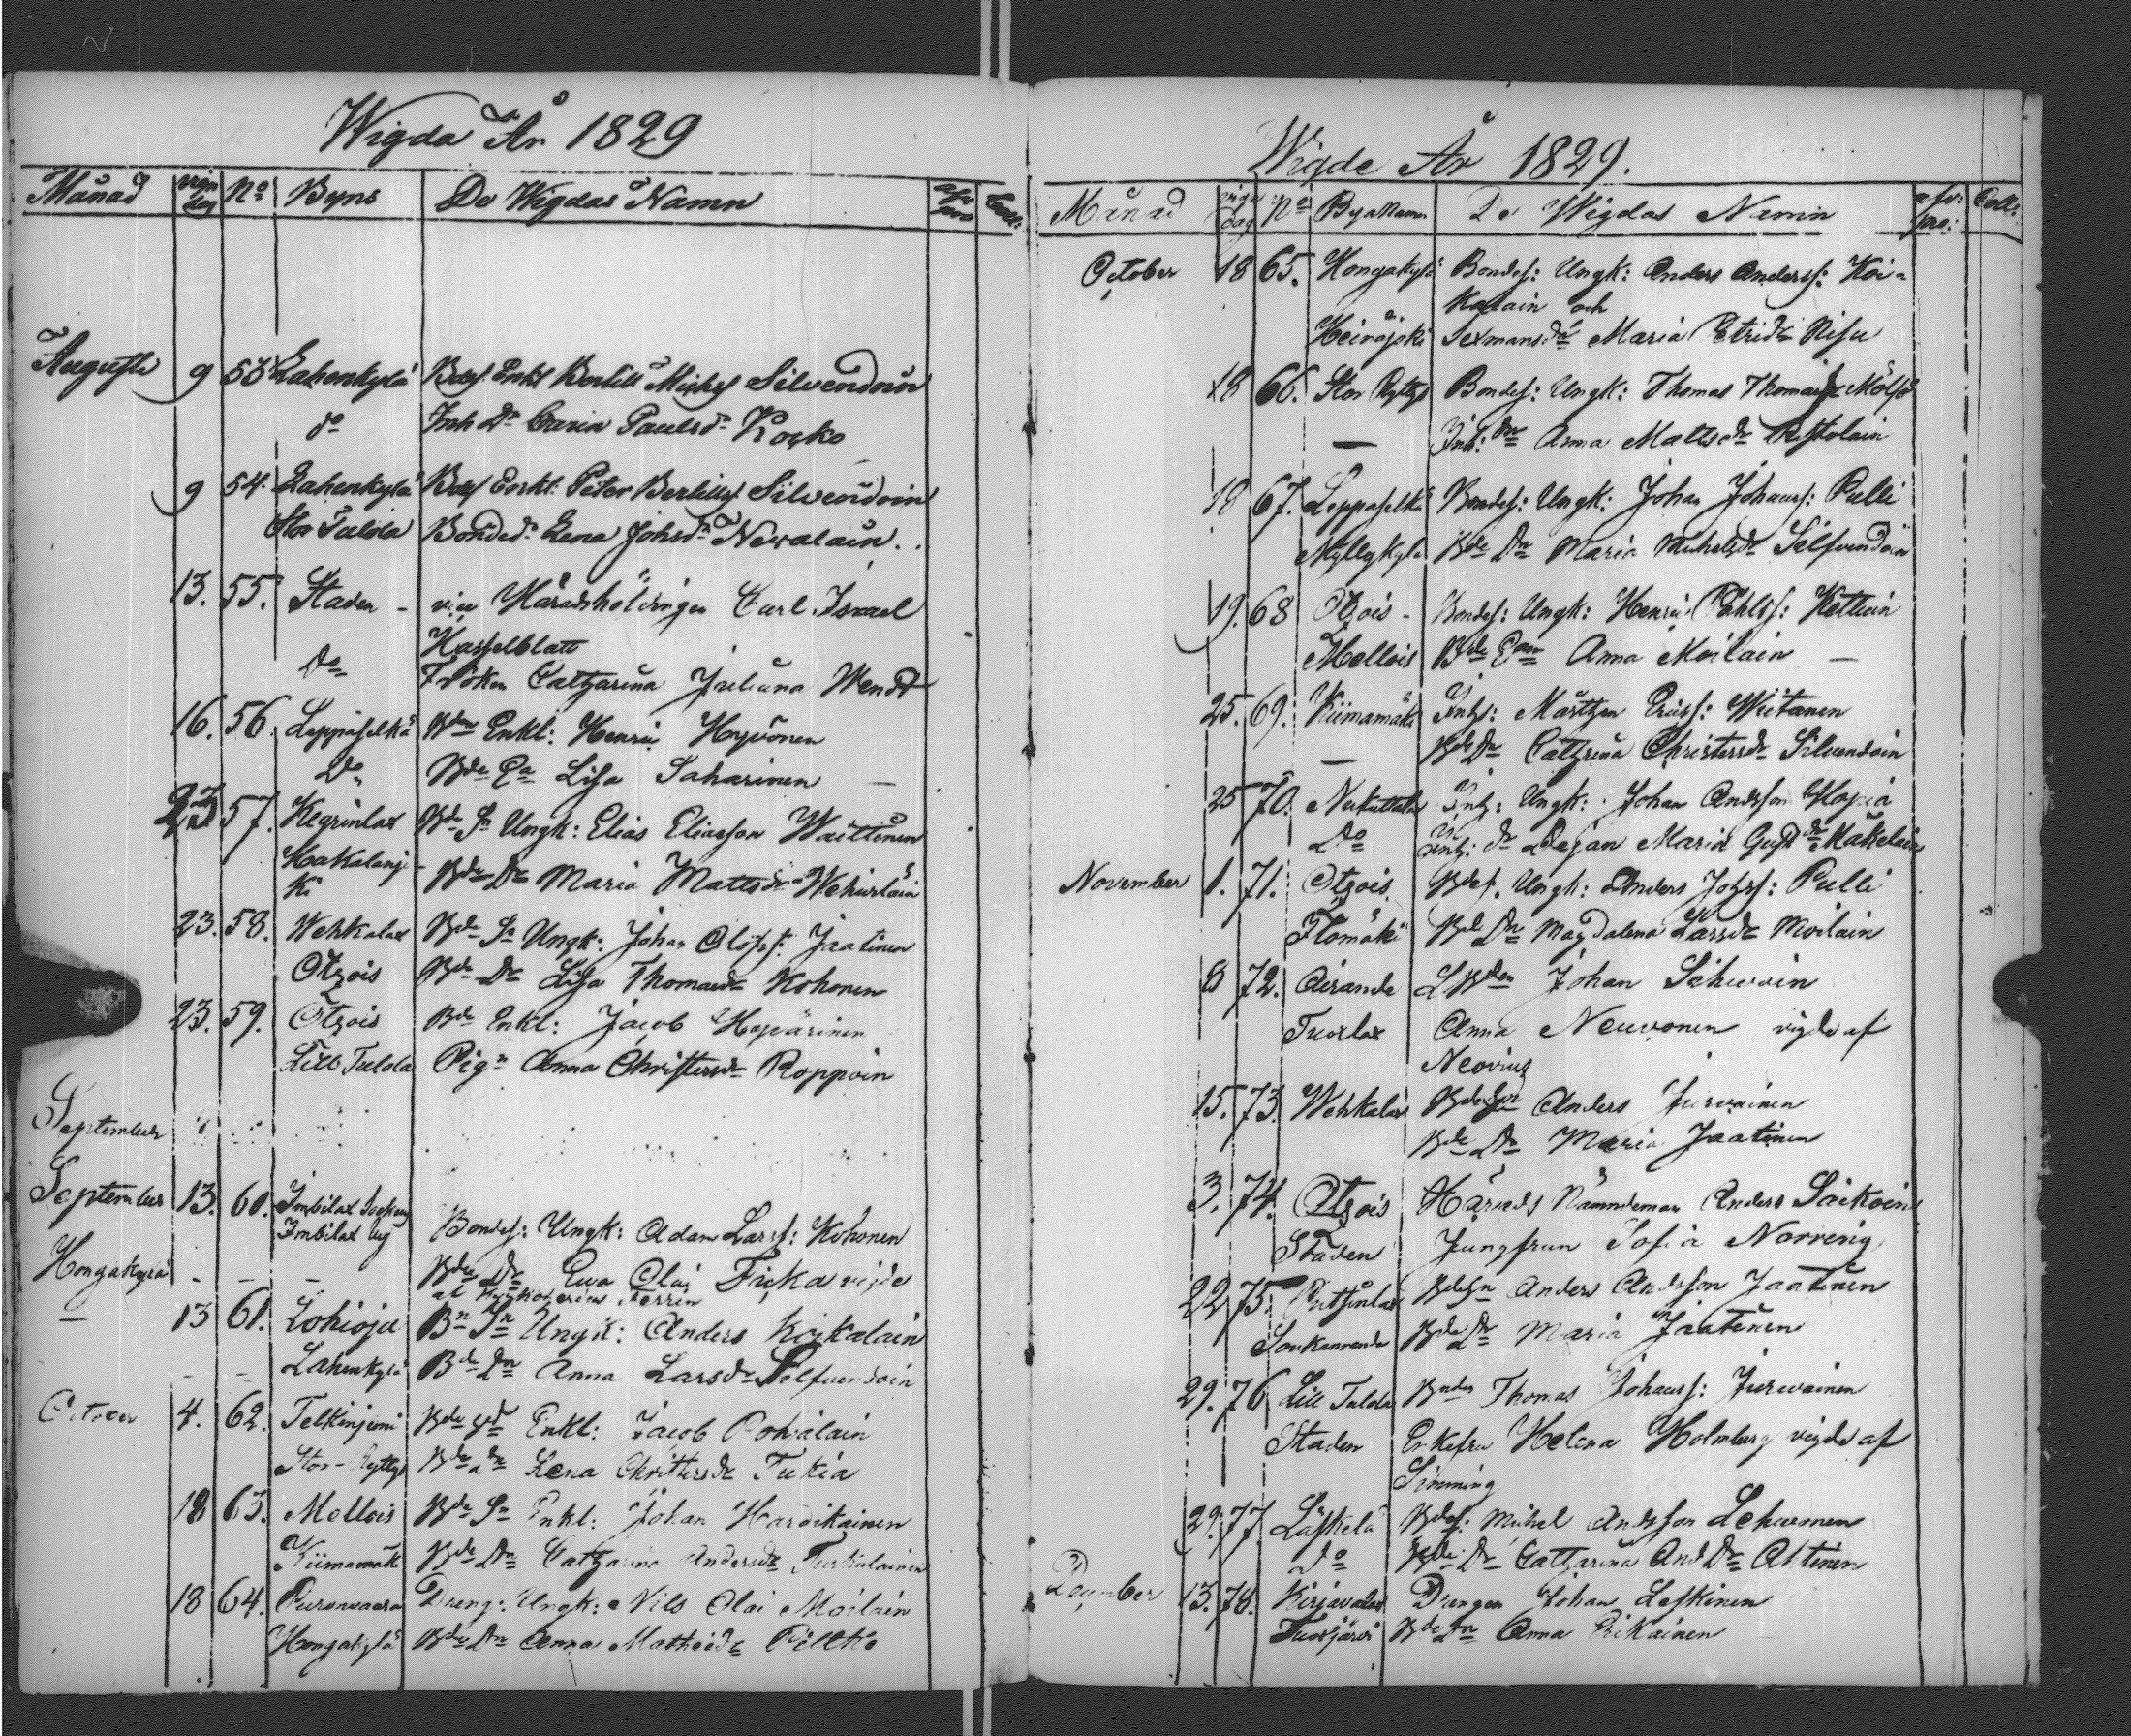 Wigda År 1829
Månad vign dag No Byns De Wigdas Namn
Augusti 9 53 Lahenkylä Bdes. Enkl Bertill Michels Silvendoin
do Inh Dr Carin Paulsdr Kocko
9 54. Lahenkylä Bdes Enkl. Peter Bertills Silvendoin
Stor Tulola Bonded. Lena Johsdr Newalain.
13. 55. Staden - vice Häradshöfdingen Carl Israel
Hasselblatt
Do Fröken Catharina Juliana Wendt
16. 56. Leppäselkä Bden Enkl: Henric Hyvönen
Do Bde Ea Lisa Saharinen —
23 57. Kegrinlax Bde Sn Ungk: Elias Eliasson Waittinen
Hakalanj-
ki Bde Dr Maria Mattsdr Wehviläin
23. 58. Wehkalax Bde Sn Ungk: Johan Olofss: Jaatinen
Otzois Bde Dr Lisa Thomasdr Kohonen
23. 59. Otzois Bde Enkl: Jacob Hyvärinen
Lill Tulola Pign Anna Christersdr Roppoin
September
September 13. 60. Imbilax
Imbilax Bondes: Ungk: Adam Larss: Kohonen
Hongakylä - - - Bde Dr Ewa Olai Ficka vigde
af Kyrkoherden
— 13 61. Lohioja Bn Sn Ungk: Anders Koikalain
- - Lahenkylä Bde Dr Anna Larsdr Silfvendoin
October 4. 62. Telkinjemi Bde Sn Enkl: Jacob Pohjalain
Stor-Ryttyt Bde Dr Lena Christersdr Tukia
18 63. Mellois Bde Sn Enkl: Johan Harvikainen
Kiimamäki Bde Dr Catharina Andersdr Turkulainen
18 64. Puronvaara Dreng: Ungk: Nils Olai Moilain
Hongakylä Bde Dr Anna Mathiedr Piltko
Wigde År 1829.
Månad vign dag No Byanamn De Wigdas Namn afv: pre: Coll:
October 18 65. Hongakylä Bondes: Ungk: Anders Anderss: Koi-
kalain och
Heinäjoki Sexmansdr Maria Petridr Risu
18 66. Stor Ryttyt Bondes: Ungk: Thomas Thomass Mölsö
— Inh: dr Anna Mattsdr
18 67. Leppäselkä Bondes: Ungk: Johan Johanss: Pulli
Myllykylä Bde Dr Maria Michelsdr Silfvendoin
19. 68 Otzois - Bondes: Ungk: Henric Påhlss: Kettuin
Mellois Bde Ean Anna Moilain —
25. 69. Kiimamäki Inh: Mårthen Ericss: Wiitanen
— Bde Dr Cathrina Christersdr Silvendoin
25 70. Nukuttala Inh: Ungk: Johan Andsson Hopia
Do Inh: dr Maria Gust dr Mäkeläin
November 1. 71. Otzois Bdes. Ungk: Anders Johss: Pulli
Ilomäki Bde Dr Magdalena Larsdr Moilain
8 72. Airanne LBden Johan Sihvoin
Tuoxlax Anna Neuvonen vigde af
Neovius
15. 73. Wehkalax Bde Sn Anders Jurvainen
Bde Dr Maria Jaatinen
3. 74. Otzois Härads Nämndeman Anders Säikoin
Staden Jungfrun Sofia Norring
22. 75. Putsinlax Bde Sn Anders Andsson Jaatinen
Sonkanranda Bde Dr Maria Jaatinen
29. 76 Lill Tulola Bnden Thomas Johanss: Jurvainen
Staden Enkefru Helena Holmberg vigde af
Simming
29. 77. Läskelä Bdes: Mihel Andsson Lehurinen
Do Bde Dr Catharina And Dr Ahtinen
December 13. 78. Kirjavalax Drengen Johan Leskinen
Tuoxjärvi Bde Dr Anna Pikainen